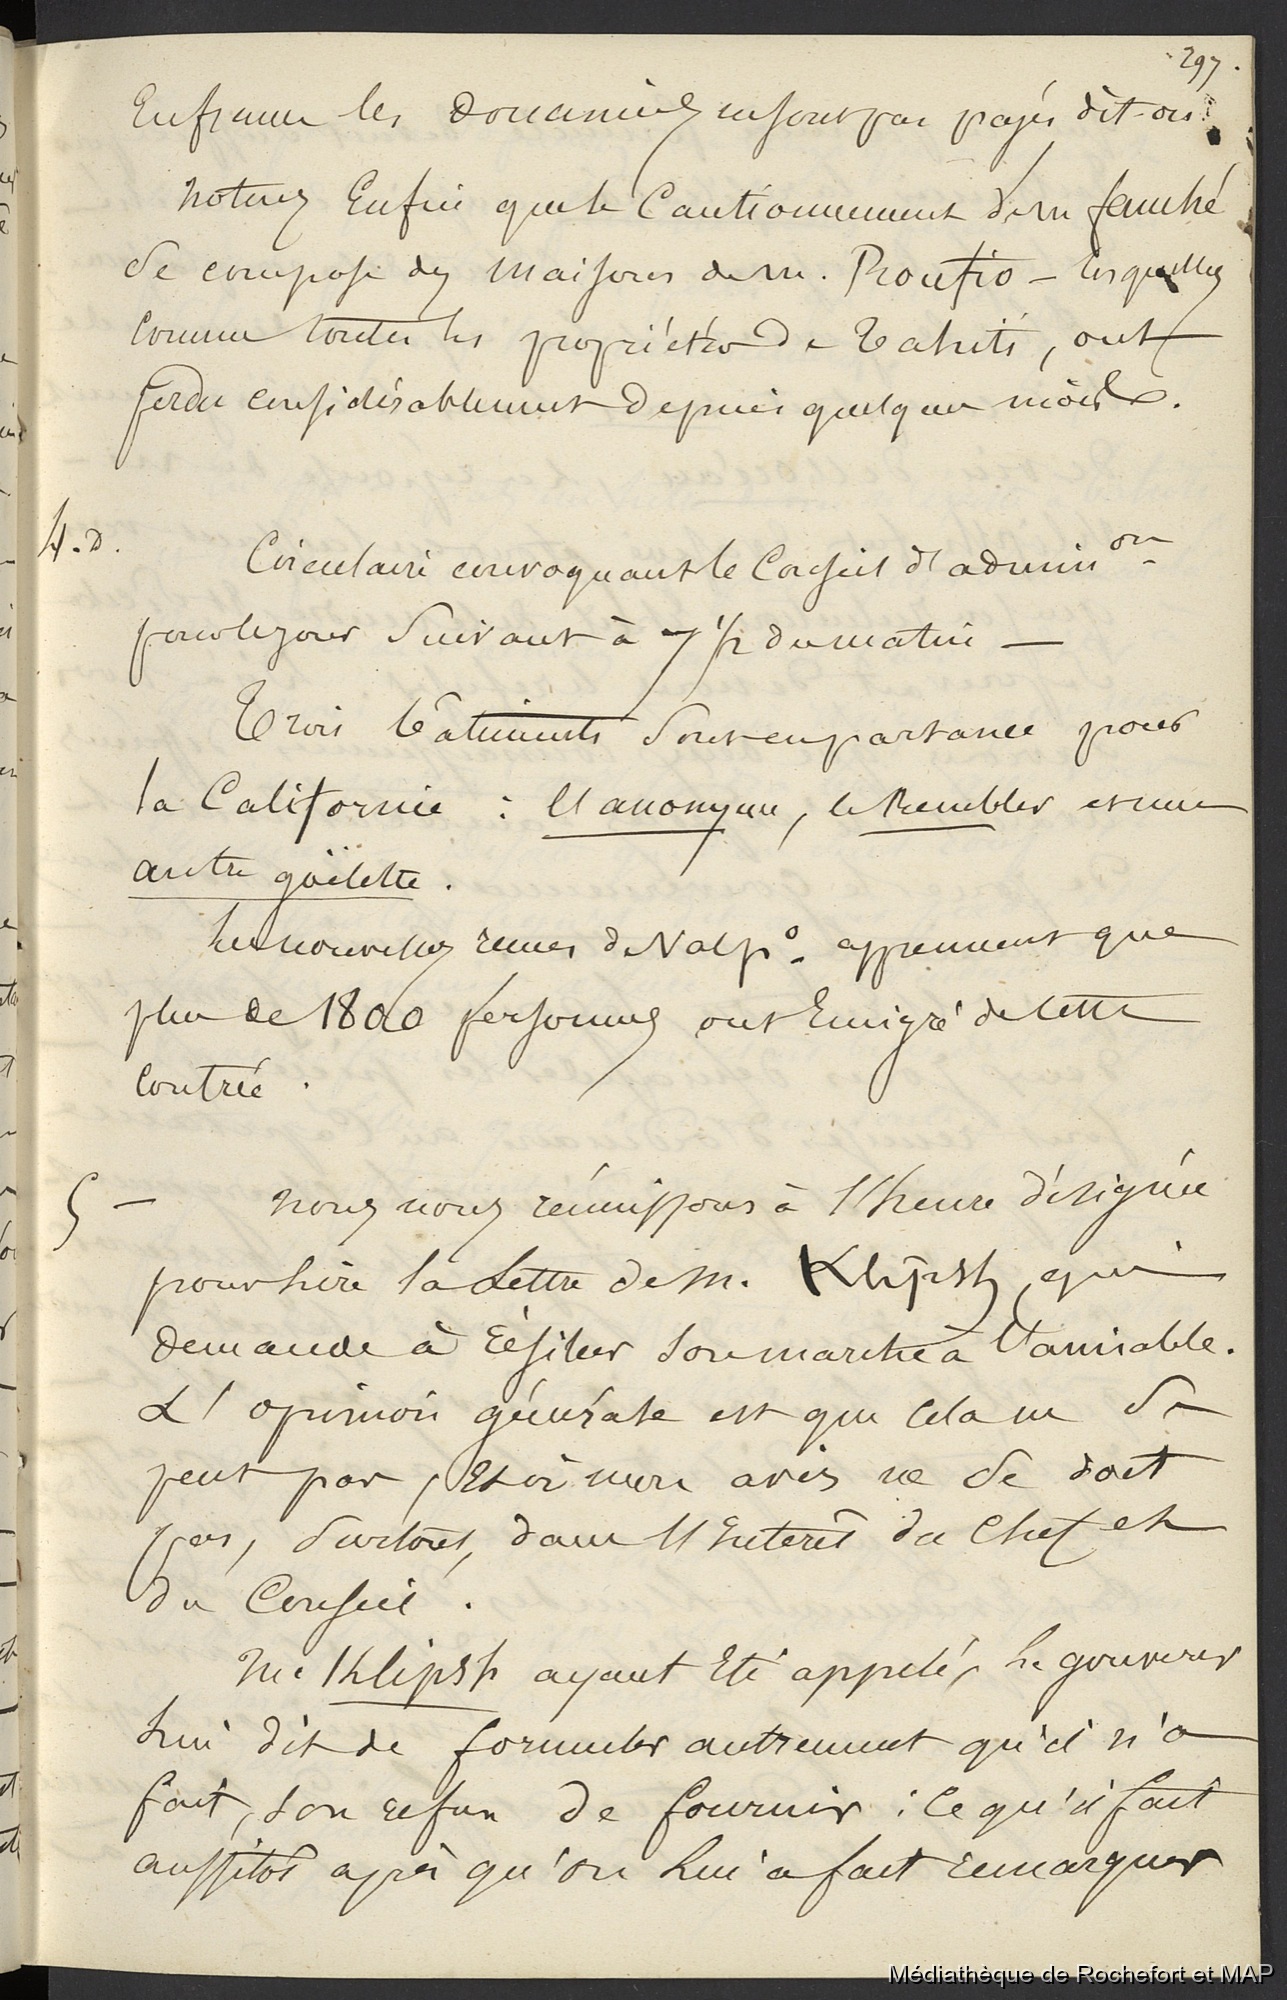 297.
En france les douaniers ne sont pas payés dit-on
notez Enfin que le Cautionnement de m fauché
se compose des maisons de m. Roufio – lesquelles
comme toutes les propriétés de Tahiti, ont
perdu considérablement depuis quelques mois.
4. d.
Circulaire convoquant le Conseil d'admin on
pour le jour suivant à 7 1/2 du matin —
Trois bâtiments sont en partance pour
la Californie : l'anonyme, le Rembler et une
autre goëlette.
les nouvelles reçues de Valp o. apprennent que
plus de 1800 personnes ont Emigré de cette
contrée.
5 —
nous nous réunissons à l'heure désignée
pour lire la Lettre de M. Klipsh, qui
demande à résilier son marché à l'amiable.
L'opinion générale est que cela ne se
peut pas, Et à mon avis ne se doit
pas, surtout, dans l'Interêt du Chef et
du Conseil.
M. Klipsh ayant Eté appelé, le gouverneur
lui dit de formuler autrement qu'il n'a
fait, son refus de fournir : ce qu'il fait
aussitôt après qu'on lui a fait remarquer
Médiathèque de Rochefort et MAP